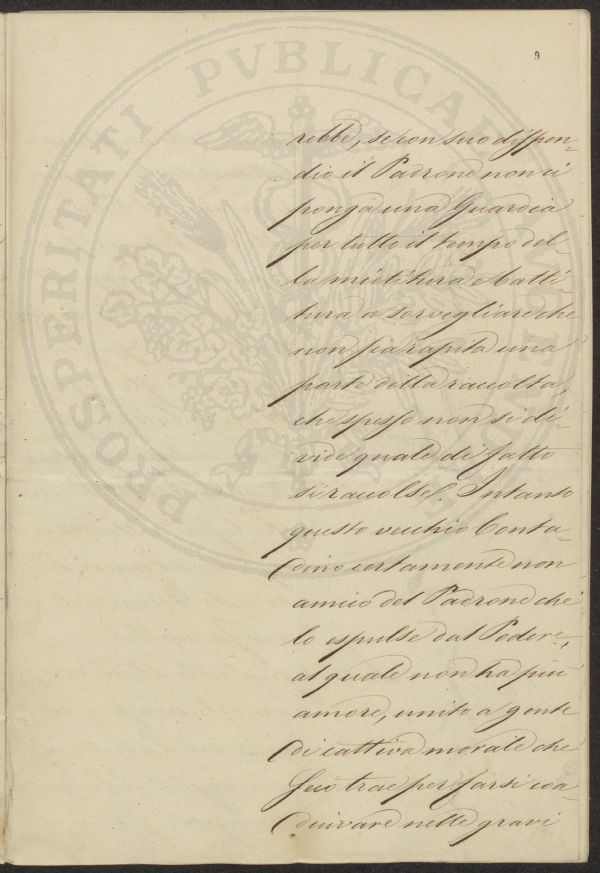 9
rebbe, se con suo dispen-
dio il Padrone non ci
ponga una Guardia
per tutto il tempo del-
la mietitura e batti-
tura a sorvegliare che
non sia rapita una
parte della raccolta,
che spesso non si di-
vide quale di fatto
si raccolse. Intanto
questo vecchio Conta-
dino certamente non
amico del Padrone che
lo espulse dal Podere,
al quale non ha più
amore, unito a gente
di cattiva morale che
seco trae per farsi coa-
diuvare nelle gravi
PROSPERITATI PVBLICAE